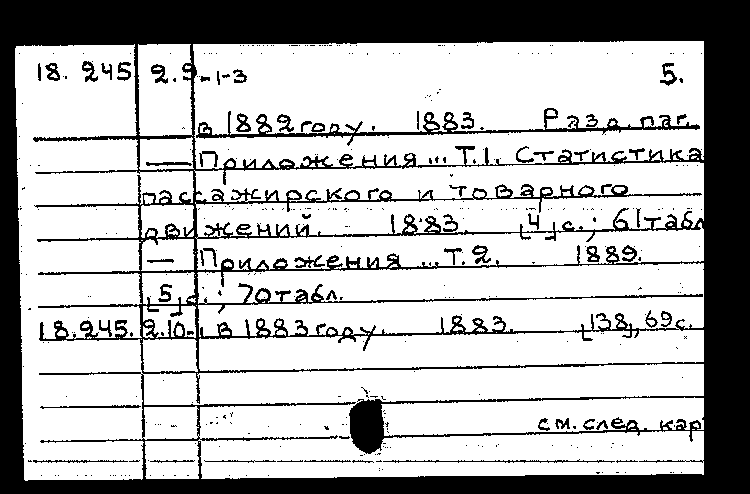 18.245 2.9-1-3 5.
в 1882 году. 1883. Разд. паг.
— Приложения... Т.1. Статистика
пассажирского и товарного
движений. 1883. [4] с.; 61 табл
— Приложения ...Т.2. 1889.
[5] с.; 70 табл.
18.245. 2.10-1 в 1883 году. 1883. [138], 69 с.
см. след. кар